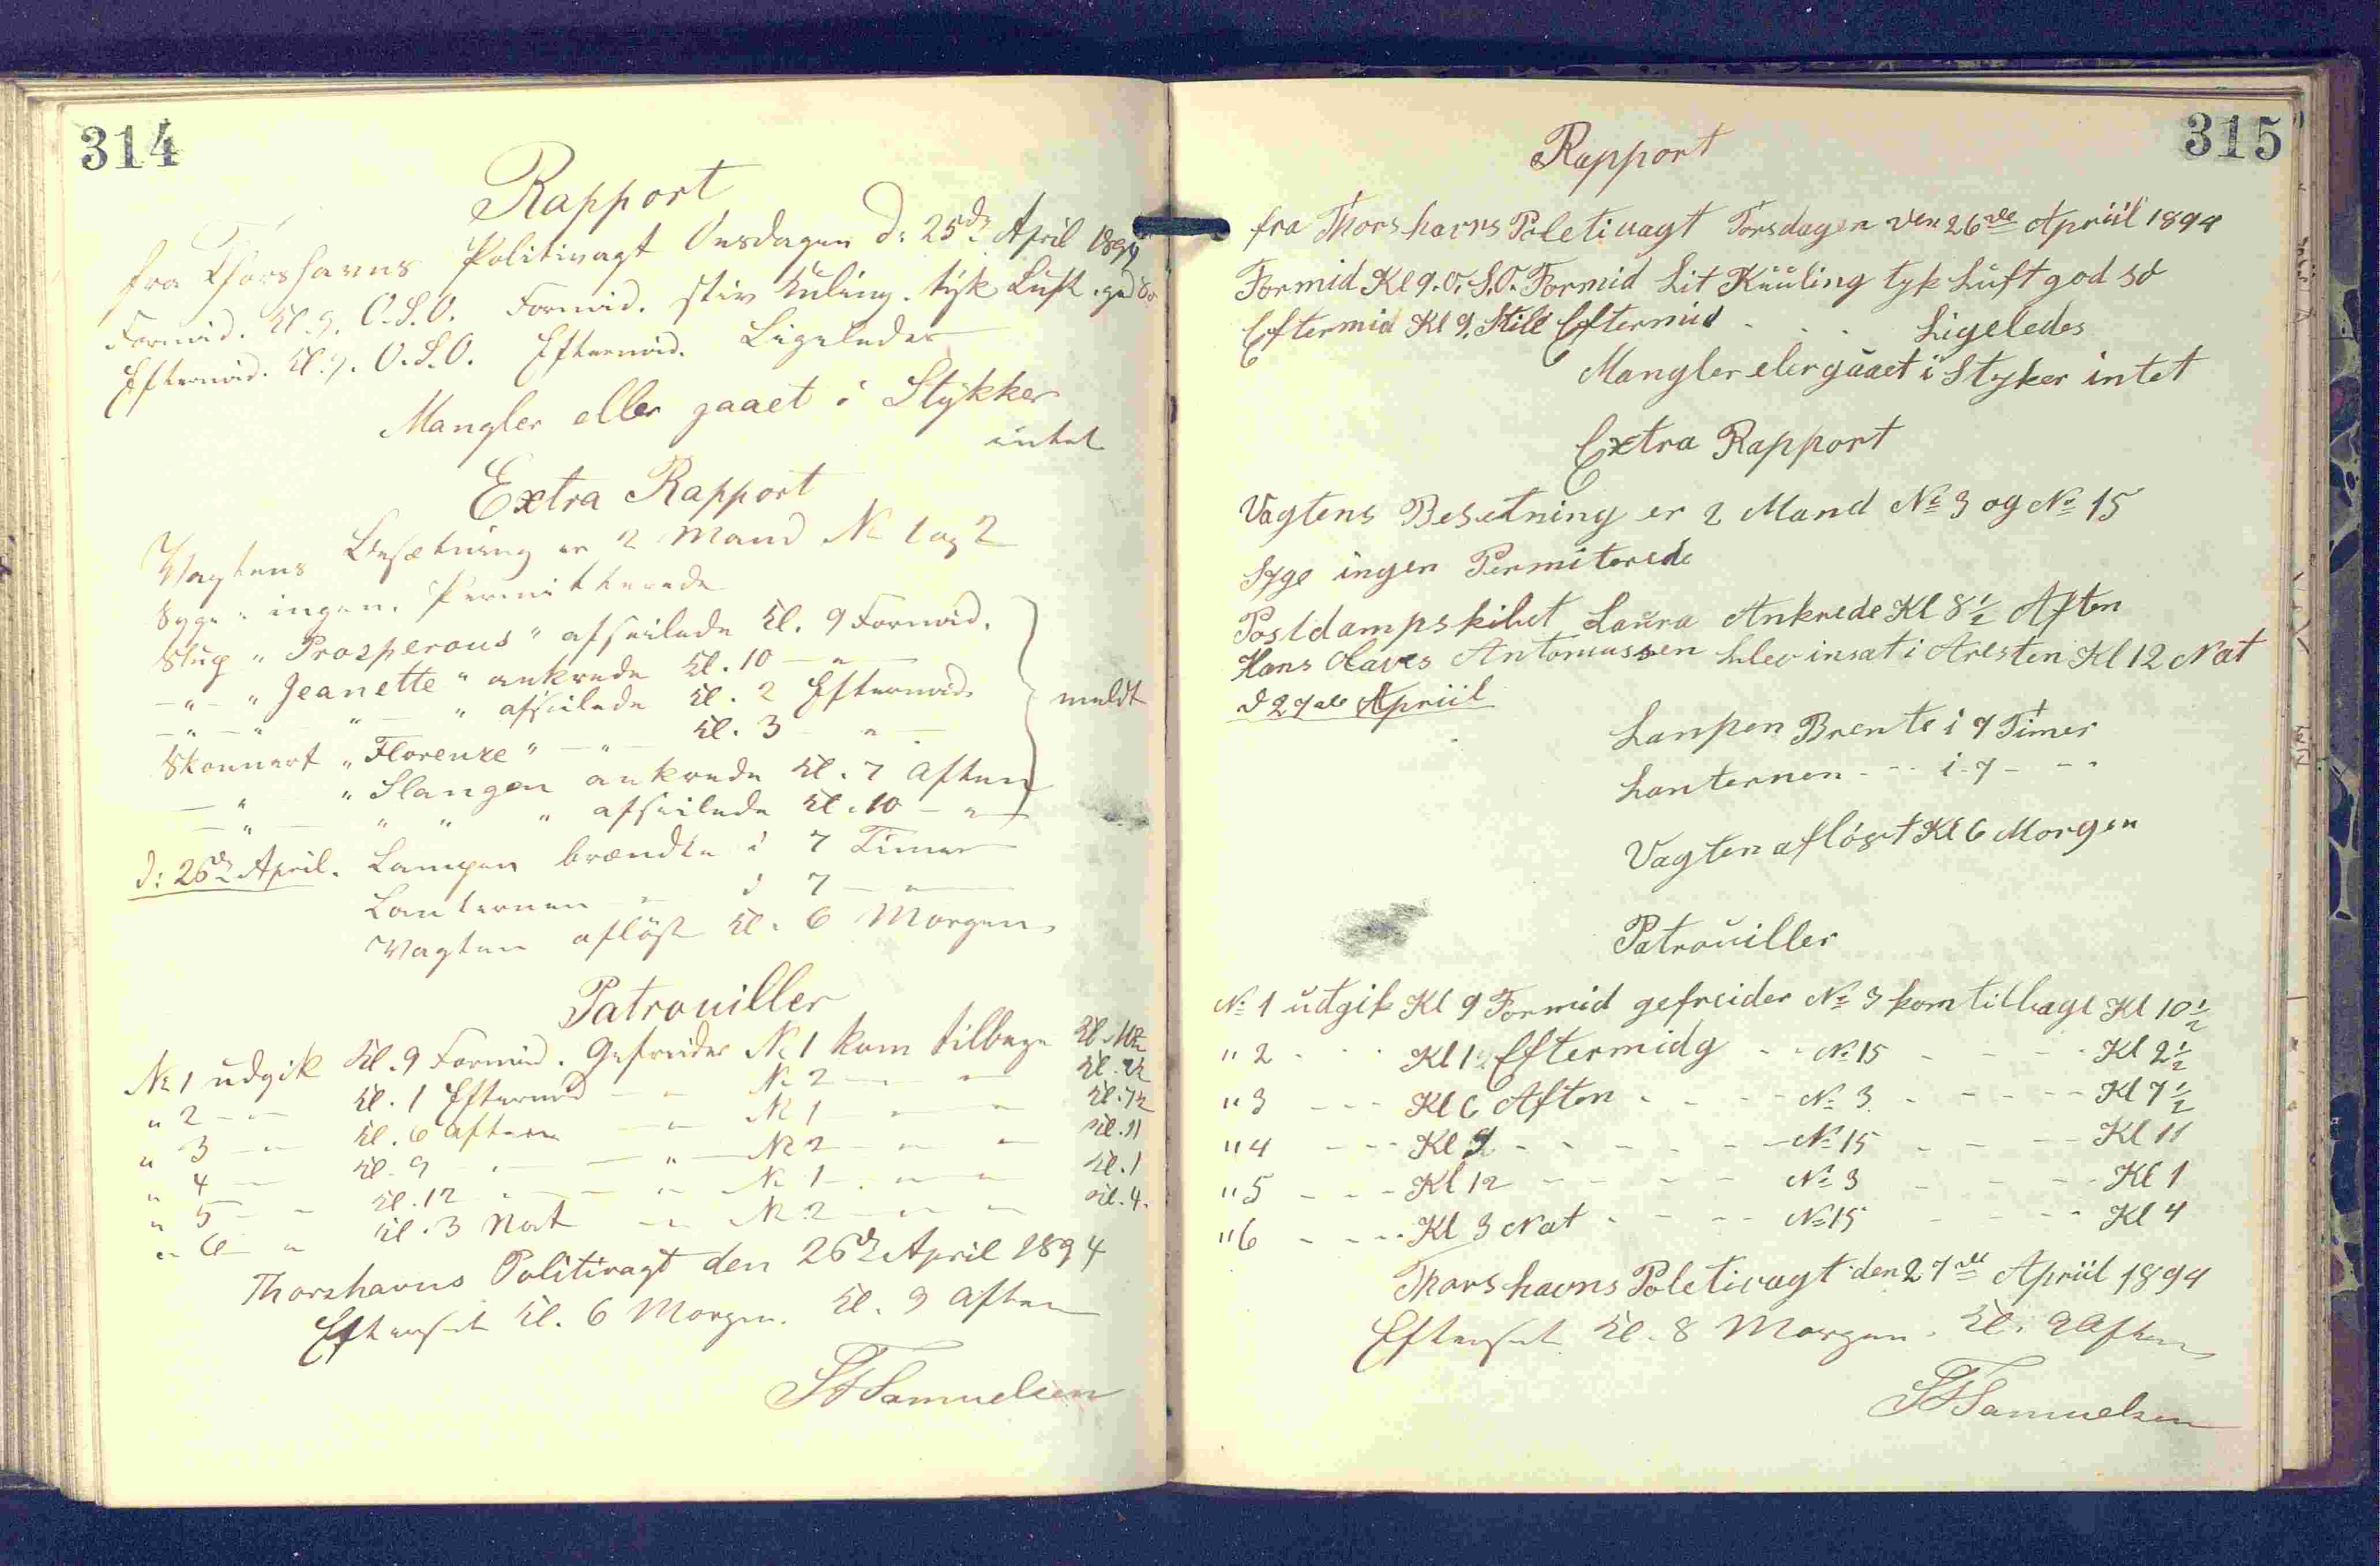 314
Rapport
fra Thorshavns Politivagt Onsdagen d: 25de April 1894
Formid. Kl. 9. O.S.O. Formid. stiv Kuling. tyk Luft. god So
Eftermid. Kl. 9. O.S.O. Eftermid. Ligeledes
Mangler eller gaaet i Stykker
intet
Extra Rapport
Vagtens Besætning er 2 Mand № 1 og 2
Syge " ingen. Permitterede
Slup " Prosperous " afseilede Kl. 9 Formid.
— " — " Jeanette " ankrede Kl. 10 — " —
— " — " — " — " afseilede Kl. 2 Eftermid.
meldt
Skonnert " Florenze " — " — Kl. 3 — " —
— " " Slangen ankrede Kl. 7 Aften
— " — " " " afseilede Kl. 10 — " —
d: 26de April. Lampen brændte i 7 Timer
Lanternen — " i 7 — " —
Vagten afløst Kl. 6 Morgen
Patrouiller
№ 1 udgik Kl. 9 Formid. Gefreider № 1 kom tilbage Kl. 10½
" 2 — " Kl. 1 Eftermid — " № 2 — " — Kl. 2½
" 3 — " Kl. 6 Aften — " № 1 " — Kl. 7½
" 4 — Kl. 9 " — " — № 2 — " — Kl. 11
" 5 — " Kl. 12 " — " № 1 — " — Kl. 1
" 6 " Kl. 3 Nat — " № 2 — " — Kl. 4.
Thorshavns Politivagt den 26de April 1894
Efterset Kl. 6 Morgen. Kl. 9 Aften
Samuelsen
315
Rapport
fra Thorshavns Poletivagt Torsdagen den 26de Apriil 1894
Formid Kl 9. O.S.O. Formid Lit Kuuling tyk Luft god So
Eftermid Kl 9. Stile Eftermid - - - Ligeledes
Mangler eler gaaet i Styker intet
Extra Rapport
Vagtens Besetning er 2 Mand № 3 og № 15
Syge ingen Permiterede
Postdampskibet Laura Ankrede Kl 8½ Aften
Hans Olaves Antoniussen blev insat i Aresten Kl 12 Nat
d 27de Apriil
Lanpen Brente i 7 Timer
Lanternen - - - i - 7 - - -
Vagten afløst Kl 6 Morgen
Patrouiller
№ 1 udgik Kl 9 Formid gefreider № 3 kom tilbage Kl 10½
" 2 - - - Kl 1 Eftermidg - - № 15 - - - Kl 2½
" 3 - - - Kl 6 Aften - - - - № 3 - - - - Kl 7½
" 4 - - - Kl 9 - - - - - - № 15 - - - Kl 11
" 5 - - - Kl 12 - - - - - № 3 - - - Kl 1
" 6 - - - Kl 3 Nat - - - - № 15 - - - Kl 4
Thorshavns Poletivagt den 27de Apriil 1894
Efterset Kl. 8 Morgen. Kl. 9 Aften
Samuelsen